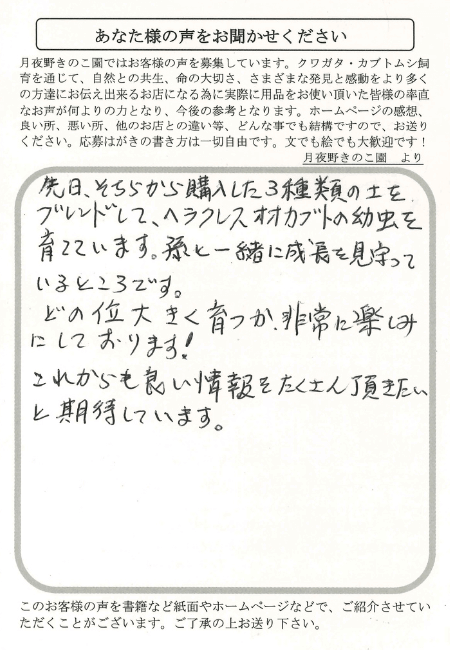 あなた様の声をお聞かせください
月夜野きのこ園ではお客様の声を募集しています。クワガタ・カブトムシ飼
育を通じて、自然との共生、命の大切さ、さまざまな発見と感動をより多く
の方達にお伝え出来るお店になる為に実際に用品をお使い頂いた皆様の率直
なお声が何よりの力となり、今後の参考となります。ホームページの感想、
良い所、悪い所、他のお店との違い等、どんな事でも結構ですので、お送り
ください。応募はがきの書き方は一切自由です。文でも絵でも大歓迎です！
月夜野きのこ園　より
先日、そちらから購入した3種類の土を
ブレンドして、ヘラクレスオオカブトの幼虫を
育てています。孫と一緒に成長を見守って
いるところです。
どの位大きく育つか、非常に楽しみ
にしております!
これからも良い情報をたくさん頂きたい
と期待しています。
このお客様の声を書籍など紙面やホームページなどで、ご紹介させてい
ただくことがございます。ご了承の上お送り下さい。